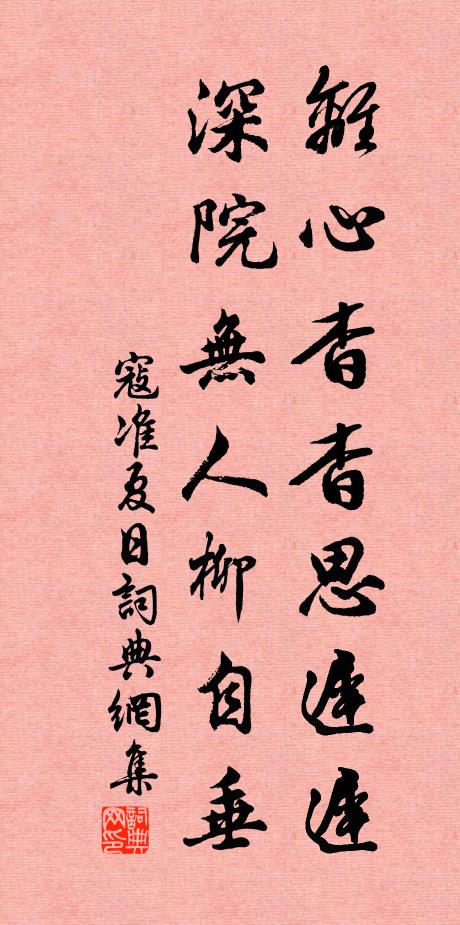 離心杳杳思遲遲
深院無人柳自垂
寇准夏日詞典網集
詞典網印